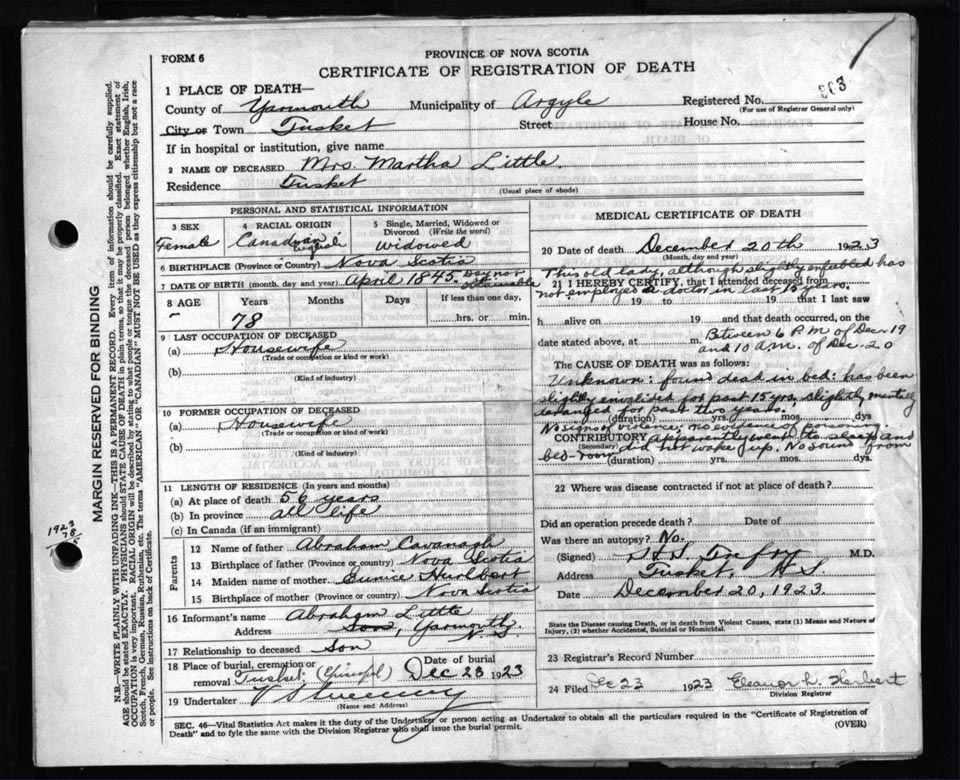 FORM 6
PROVINCE OF NOVA SCOTIA
CERTIFICATE OF REGISTRATION OF DEATH
1 PLACE OF DEATH—
County of Yarmouth Municipality of Argyle Registered No.
(For use of Registrar General only)
City or Town Tusket Street House No.
If in hospital or institution, give name
2 NAME OF DECEASED Mrs. Martha Little
Residence Tusket
(Usual place of abode)
PERSONAL AND STATISTICAL INFORMATION
3 SEX
Female
4 RACIAL ORIGIN
Canadian
English
5 Single, Married, Widowed or
Divorced (Write the word)
widowed
6 BIRTHPLACE (Province or Country) Nova Scotia
7 DATE OF BIRTH (month, day and year) April 1845. Day not
obtainable
8 AGE Years Months Days If less than one day,
78 hrs. or min.
9 LAST OCCUPATION OF DECEASED
(a) Housewife
(Trade or occupation or kind or work)
(b)
(Kind of industry)
10 FORMER OCCUPATION OF DECEASED
(a) Housewife
(Trade or occupation or kind of work)
(b)
(Kind of industry)
11 LENGTH OF RESIDENCE (In years and months)
(a) At place of death 56 years
(b) In province all life
(c) In Canada (if an immigrant)
Parents
12 Name of father Abraham Cavanagh
13 Birthplace of father (Province or Country) Nova Scotia
14 Maiden name of mother Eunice Hurlbert
15 Birthplace of mother (Province or country) Nova Scotia
16 Informant's name Abraham Little
Address Son, Yarmouth,
N S
17 Relationship to deceased son
18 Place of burial, cremation or removal Tusket. (Episcopl) Date of burial Dec 23 1923
19 Undertaker V S Sweeney
(Name and Address)
MEDICAL CERTIFICATE OF DEATH
20 Date of death December 20th 1923
(Month, day and year)
This old lady, although slightly enfeebled has
21 I HEREBY CERTIFY, that I attended deceased from
not employed a doctor in last 15 years.
19 to 19 that I last saw
h alive on 19 and that death occurred, on the
date stated above, at m. Between 6 P.M of Dec 19
and 10 A.M. of Dec. 20
The CAUSE OF DEATH was as follows:
Unknown: found dead in bed: has been
slightly invalided for past 15 yrs, slightly mentally
deranged for past two years.
(duration) yrs. mos. dys
No signs of violence, no evidence of poisoning.
CONTRIBUTORY apparently went to sleep and
(Secondary) did not wake up. No sound from
bed-room (duration) yrs. mos. dys.
22 Where was disease contracted if not at place of death?
Did an operation precede death? Date of
Was there an autopsy? No.
(Signed) Trefry M.D.
Address Tusket, N S
Date December 20, 1923.
State the Disease causing Death, or in death from Violent Causes, state (1) Means and Nature of
Injury, (2) whether Accidental, Suicidal or Homicidal.
23 Registrar's Record Number
24 Filed Dec 23 1923 Eleanor L. Herbert
Division Registrar
SEC. 46—Vital Statistics Act makes it the duty of the Undertaker or person acting as Undertaker to obtain all the particulars required in the "Certificate of Registration of
Death" and to fyle the same with the Division Registrar who shall issue the burial permit. (OVER)
MARGIN RESERVED FOR BINDING
N.B.—WRITE PLAINLY WITH UNFADING INK—THIS IS A PERMANENT RECORD. Every item of information should be carefully supplied.
AGE should be stated EXACTLY. PHYSICIANS should STATE CAUSE OF DEATH in plain terms, so that it may be properly classified. Exact statement of
OCCUPATION is very important. RACIAL ORIGIN will be described by stating to what people or tongue the deceased person belonged whether English, Irish,
Scotch, French, German, Russian, Ruthenian, etc. The terms "AMERICAN" or "CANADIAN" MUST NOT BE USED as they express citizenship but not a race
or people. See instructions on back of Certificate.
1923
78